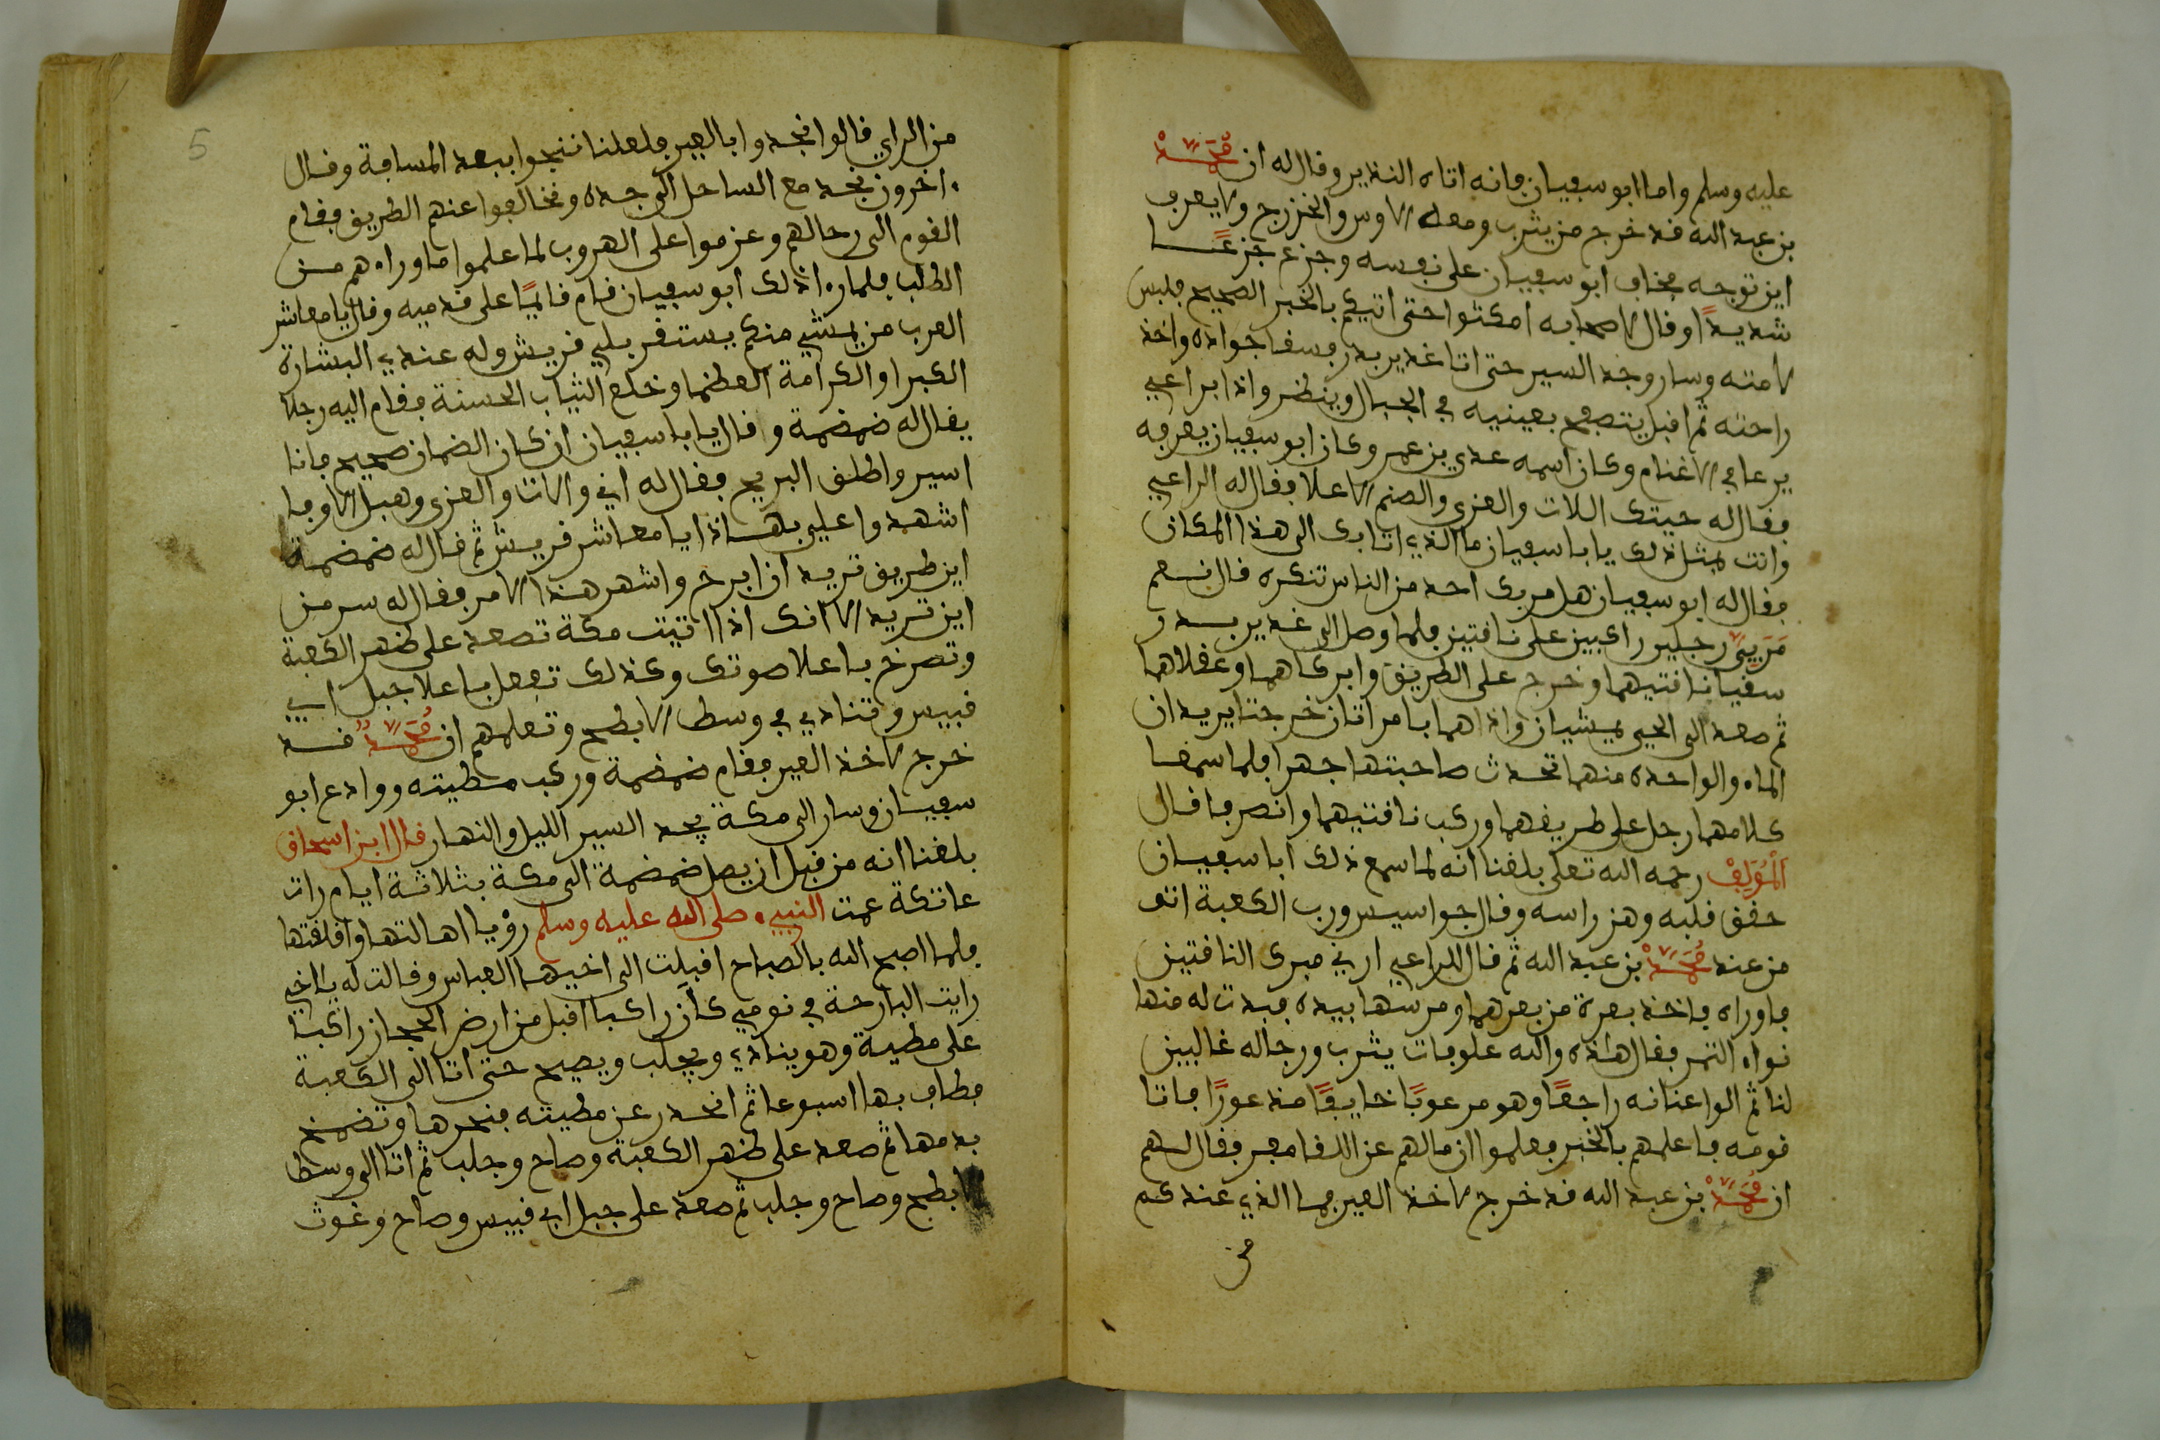 عليه وسلم واما ابو سفيان فانه اتاه النذير وقال له ان مُحَمَّدْ
بن عبد الله قد خرج من يثرب ومعه الاوس والخزرج ولا يعرف
اين توجه فخاف ابو سفيان على نفسه وجزع جزعًا
شديدًا وقال لاصحابه امكثوا حتى اتيكم بالخبر الصحيح فلبس
لامته وسار وجد السير حتى اتا غدير بدر فسقا جواده واخذ
راحته ثم اقبل يتصفح بعينيه في الجبال وينظر واذا براعي
يرعا في الاغنام وكان اسمه عدي بن عمر وكان ابو سفيان يعرفه
فقال له حيتك اللات والعزى والصنم الاعلا فقال له الراعي
وانت بمثل ذلك يا با سفيان ما الذي اتا بك الى هذا المكان
فقال له ابو سفيان هل مر بك احد من الناس تنكره قال نعم
مَرَ بِيَ رجلين راكبين على ناقتين فلما وصل الى غدير بدر
سقيا ناقتيهما وخرج على الطريق وابركاهما وعقلاهما
ثم صعد الى الحيى يمشيان واذا هما بامراتان خرجتا يريدان
الماء والواحدة منهما تحدث صاحبتها جهرا فلما سمعا
كلامهما رجل على طريقهما وركب ناقتيهما وانصرفا قال
اَلْمُؤَلِفْ رحمه الله تعلى بلغنا انه لما سمع ذلك ابا سفيان
خفق قلبه وهز راسه وقال جواسيس ورب الكعبة اتو
من عند مُحَمَّدْ بن عبد الله ثم قال للراعي ارني مبرك الناقتين
فاوراه فاخذ بعرة من بعرهما ومرسها بيده فبدت له منها
نواه التمر فقال هذه والله علوفات يثرب ورجاله غالبين
لنا ثم الوا عنانه راجعًا وهو مرعوبًا خايفًا مذعورًا فاتا
قومه فاعلمهم بالخبر فعلموا ان مالهم عن اللقا مفر فقال لهم
ان مُحَمَّدْ بن عبد الله قد خرج لاخذ العير فما الذي عندكم
من
5
من الراي قالوا نجدوا بالعير فلعلنا ننجوا ببعد المسافة وقال
اخرون نجد مع الساحل الى جده ونخالفوا عنهم الطريق فقام
القوم الى رحالهم وعزموا على الهروب لما علموا ما وراءهم من
الطلب فلما راء ذلك ابو سفيان قام قايمًا على قدميه وقال يا معاشر
العرب من يمشي منكم يستفر بلي قريش وله عندي البشارة
الكبرا والكرامة العظما وخلع الثياب الحسنة فقام اليه رجلا
يقال له ضمضمة وقال يا با سفيان ان كان الضمان صحيح فانا
اسير واطلق البريح فقال له اني والات والعزى وهبل الاوفا
اشهدوا علي بهاذا يا معاشر قريش ثم قال له ضمضمة
اين طريق تريد ان ابرح واشهر هذا الامر فقال له سر من
اين تريد الا انك اذا اتيت مكة تصعد على ظهر الكعبة
وتصرخ باعلا صوتك وكذلك تفعل باعلا جبل ابي
قبيس وتنادي في وسط الابطح وتعلمهم ان مُحَمَّدٌ قد
خرج لاخذ العير فقام ضمضمة وركب مطيته ووادع ابو
سفيان وسار الى مكة يجد السير الليل والنهار قال ابن اسحاق
بلغنا انه من قبل ان يصل ضمضمة الى مكة بثلاثة ايام رات
عاتكة عمت النبيء صلى الله عليه وسلم رؤيا اهالتها واقلقتها
فلما اصبح الله بالصباح اقبلت الى اخيها العباس وقالت له يا اخي
رايت البارحة في نومي كان راكبا اقبل من ارض الحجاز راكبا
على مطية وهو ينادي ويجلب ويصيح حتى اتا الى الكعبة
فطاف بها اسبوعا ثم انحدر عن مطيته فنحرها وتضمخ
بدمها ثم صعد على ظهر الكعبة وصاح وجلب ثم اتا الى وسط
الابطح وصاح وجلب ثم صعد على جبل ابي قبيس وصاح وغوث